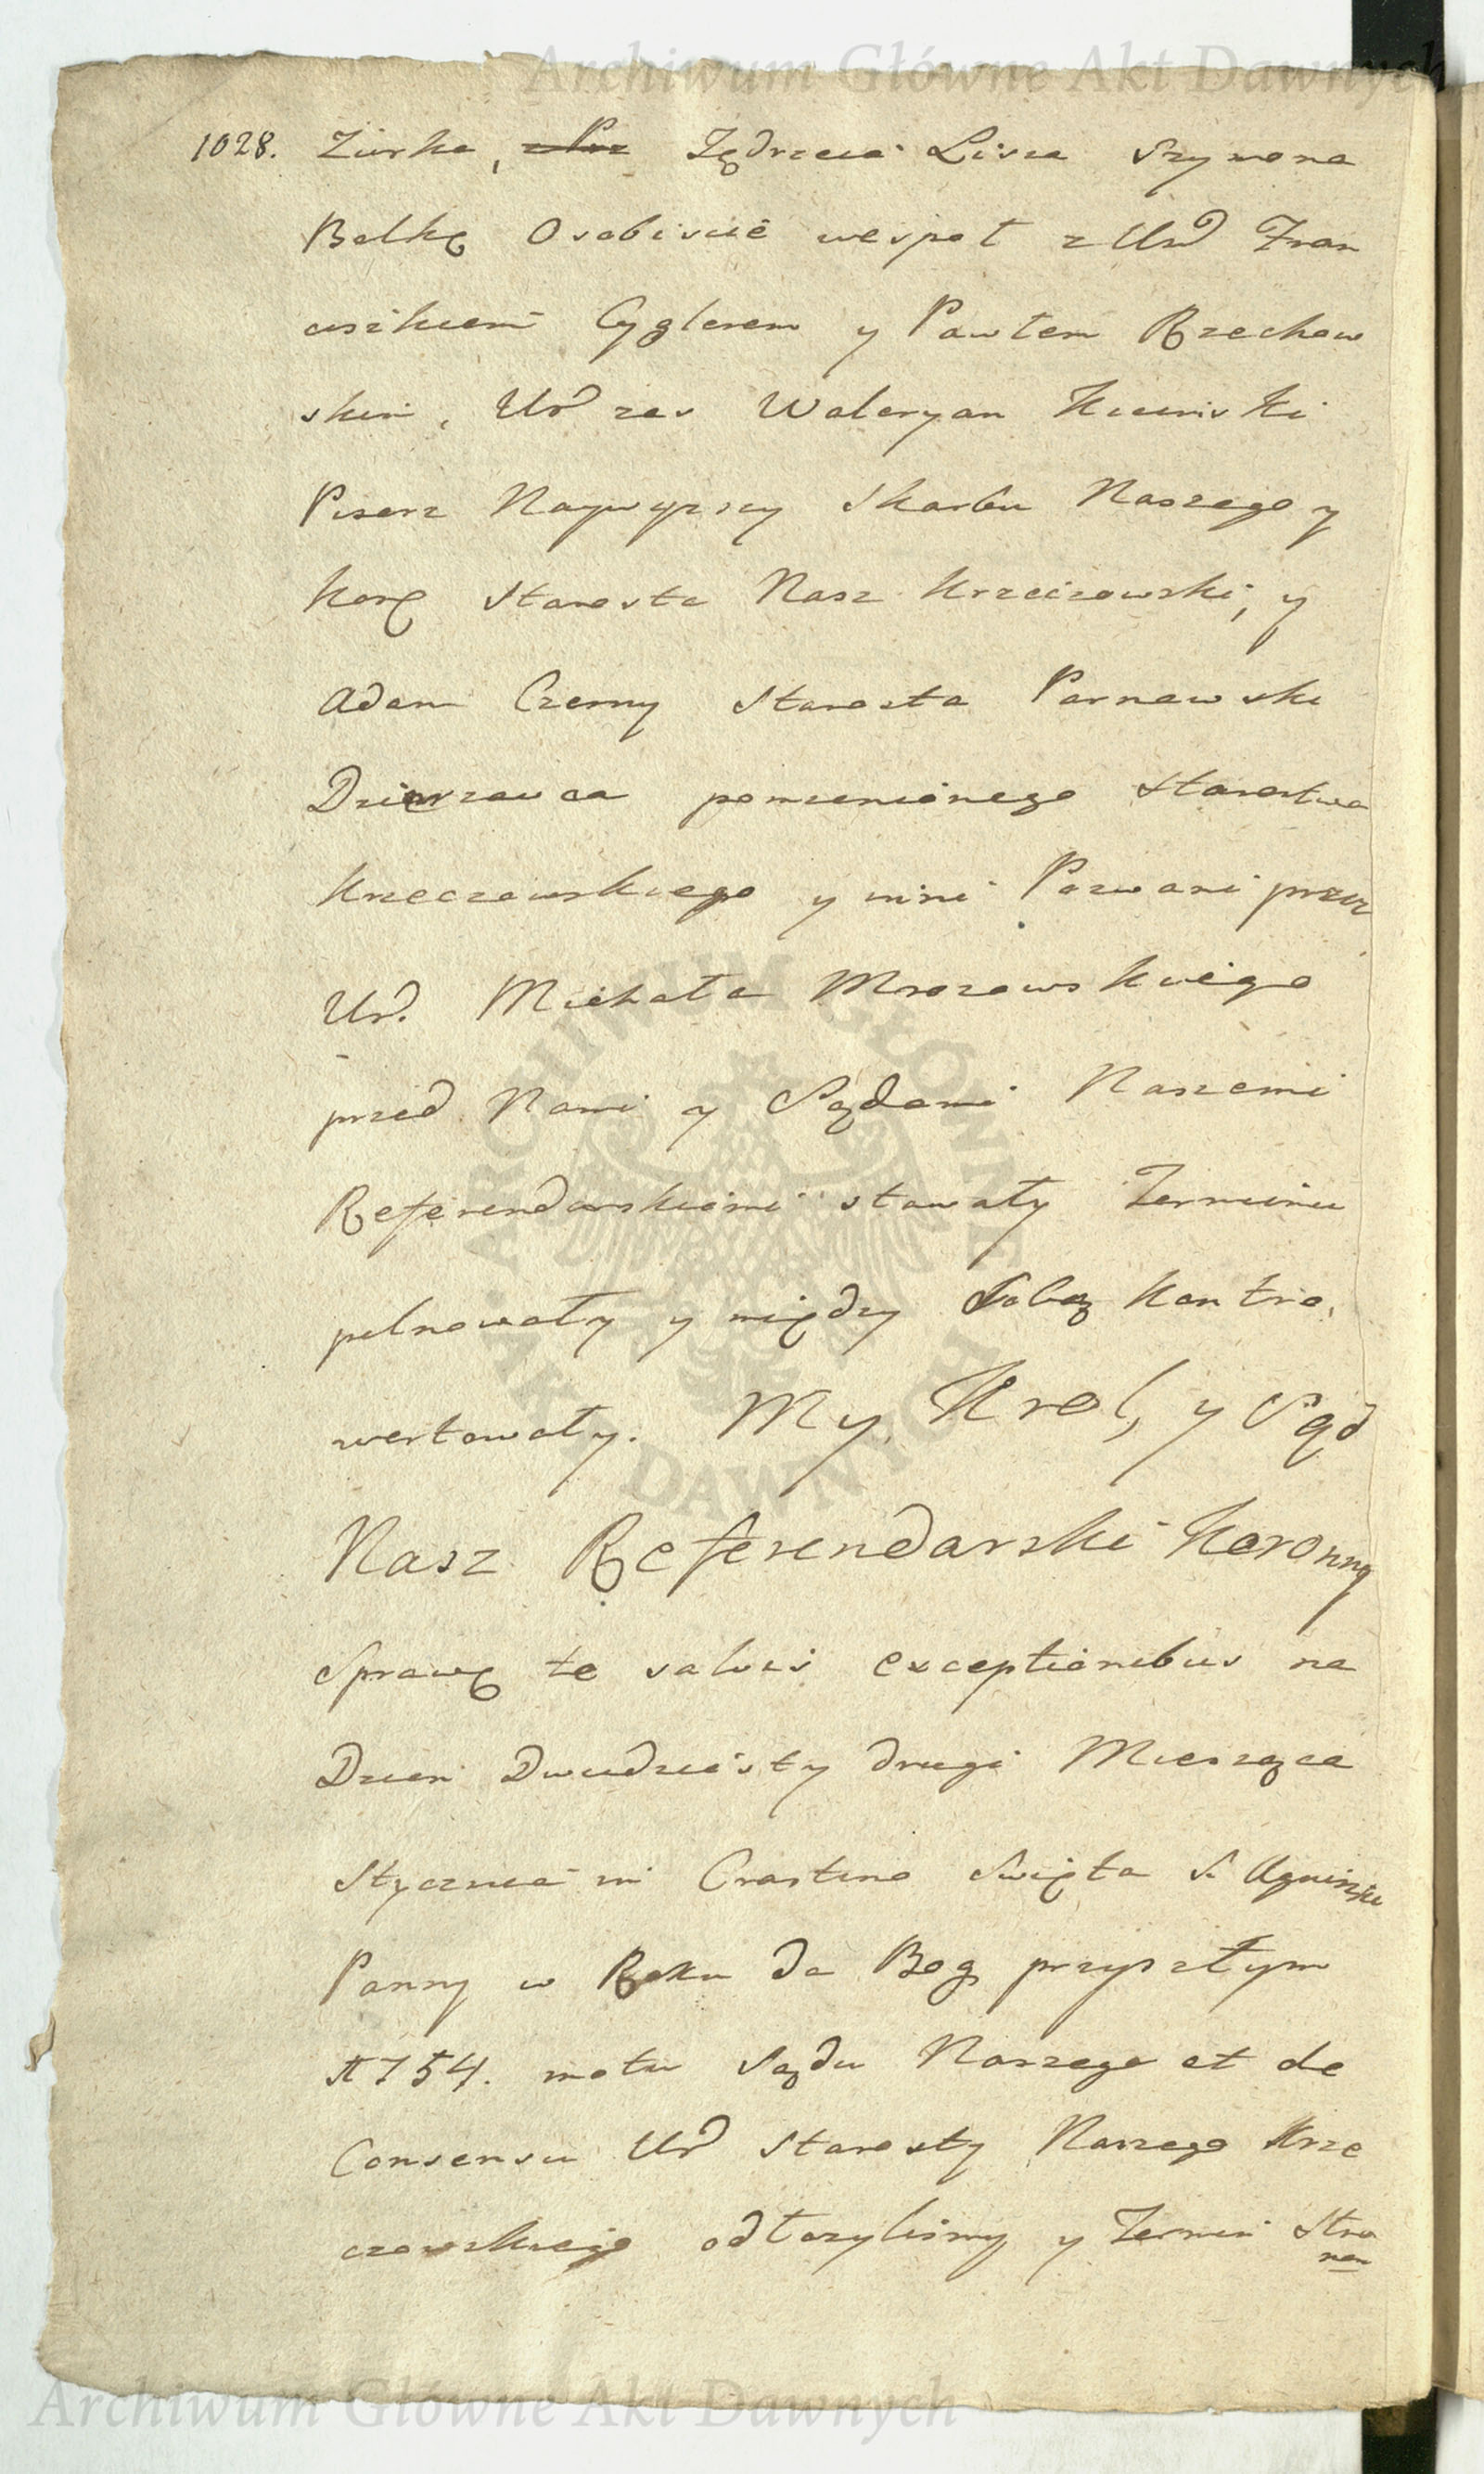 Archiwum Główne Akt Dawnych
1028. Zurka, Jędrzeia Lisza Szymona
Balkę Osobiscie wespoł z Ur Fran
ciszkiem Cyglerem y Pawłem Rzechow
skim, Ur zas Waleryan
Pisarz Naywyzszy Skarbu Naszego y
Korę Starosta Nasz Krzeczowski, y
Adam Czerny Starosta Parnawski
Dzierzawca pomienionego Starostwa
Krzeczowskiego y inni Pozwani przez
Ur. Michała Mrozowskiego
przed Nami y Sądami Naszemi
Referendarskiemi stawały Terminu
pelnowały y między Sobą Kontro,
wertowały. My Krol, y Sąd
Nasz Referendarski Koronny
Sprawę te salvis exceptionibus na
Dzien Dwudziesty drugi Miesząca
Stycznia in Crastino Swięta S. Agniszki
Panny w Roku da Bog przyszłym
1754. motu Sądu Naszego et de
Consensu Ur Starosty Naszego Krze
czowskiego odłozylismy y Termin Stro
nom
ARCHIWUM GŁÓWNE AKT DAWNYCH
Archiwum Główne Akt Dawnych